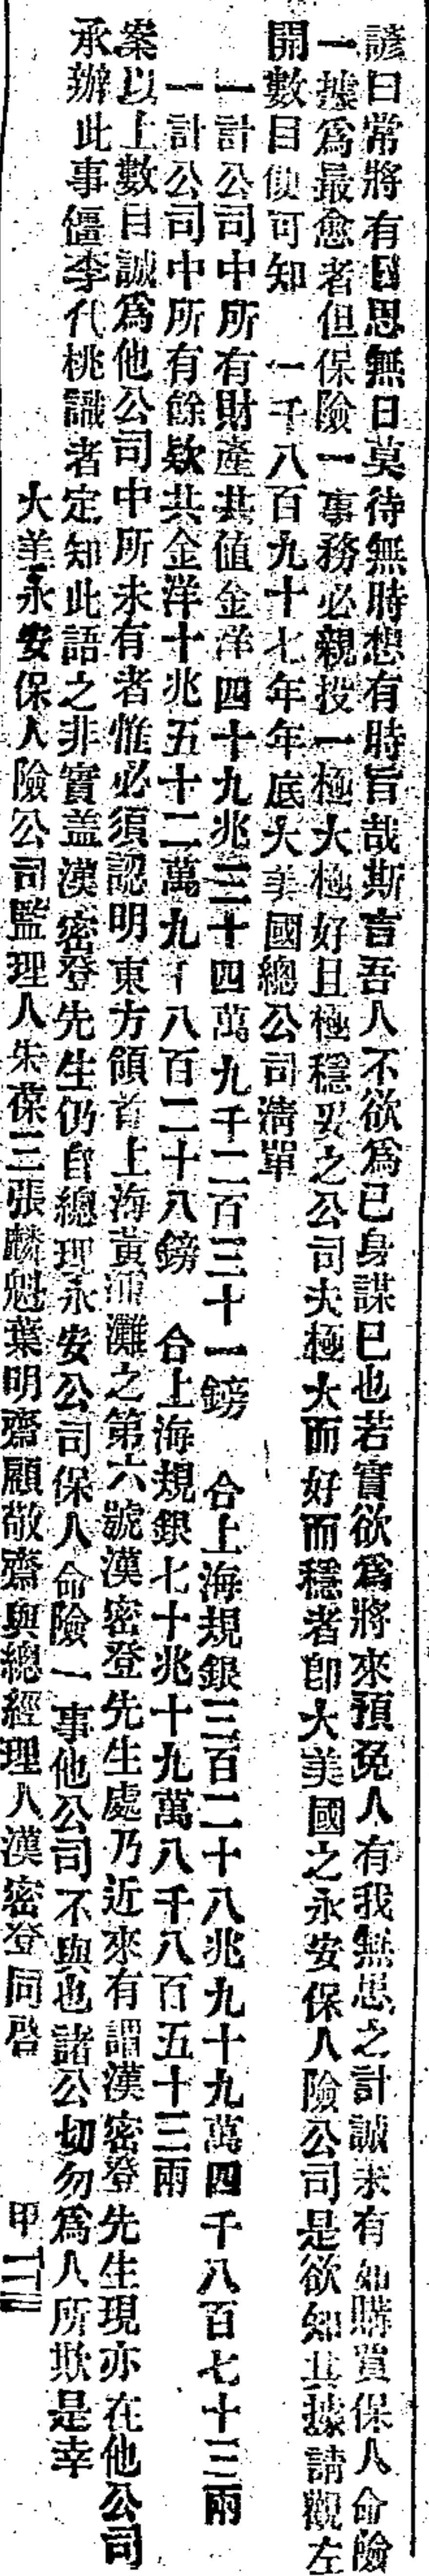 諺曰常將有日思無日莫待無時想有時旨哉斯言吾人不欲爲已身謀已也若實欲爲將來預免人有我無患之計誠未有如購買保人命險
一據爲最愈者但保險一事務必親投一極大極好且極穩妥之公司夫極大而好而穩者卽大美國之永安保人險公司是欲知其據請觀左
開數目便可知 一千八百九十七年年底大美國總公司淸單
一計公司中所有財產共値金洋四十九兆三十四萬九千二百三十一鎊 合上海規銀三百二十八兆九十九萬四千八百七十三兩
一計公司中所有餘欵共金洋十兆五十二萬九千八百二十八鎊 合上海規銀七十兆十九萬八千八百五十三兩
案以上數目誠爲他公司中所未有者惟必須認明東方領首上海黃浦灘之第六號漢密登先生處乃近來有謂漢密登先生現亦在他公司
承辦此事僵李代桃識者定知此語之非實盖漢密登先生仍自總理永安公司保人命險一事他公司不與也諸公切勿爲人所欺是幸
大美永安保人險公司監理人朱葆三張麟魁葉明齋顧敬齋與總經理人漢密登同啓 甲